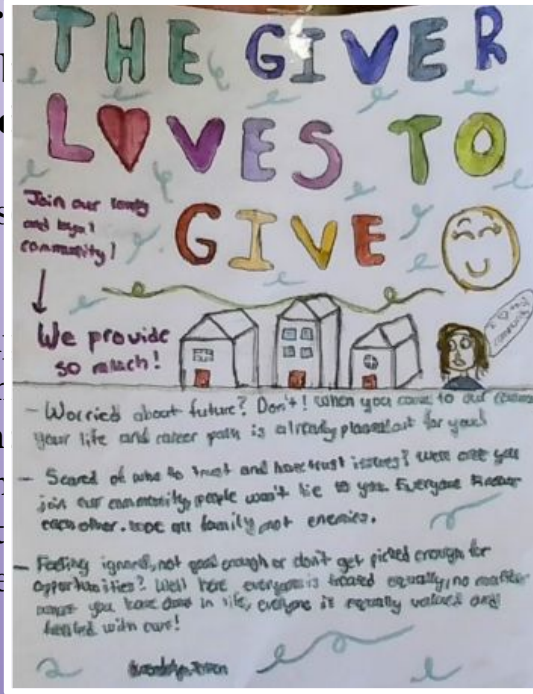 THE GIVER
LOVES TO
GIVE
Join our lovely
and loyal
community!
We provide
so much!
I ♡ my
community
- Worried about future? Don't! When you come to our
your life and career path is already planned out for you!
- Scared of who to trust and have trust issues? Well once you
join our community, people won't lie to you. Everyone knows
each other. We're all family not enemies.
- Feeling ignored, not good enough or don't get picked enough for
opportunities? Well here everyone is treated equally, no matter
what you have done in life, everyone is equally valued and
treated with care!